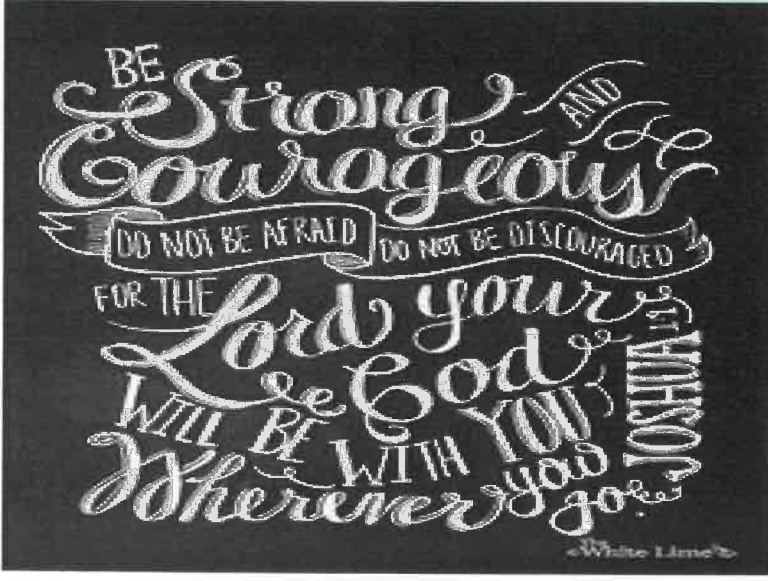 BE
Strong AND
Courageous
DO NOT BE AFRAID DO NOT BE DISCOURAGED
FOR THE Lord your
God
WILL BE WITH YOU
Wherever you go.
JOSHUA 1:9
White Lime